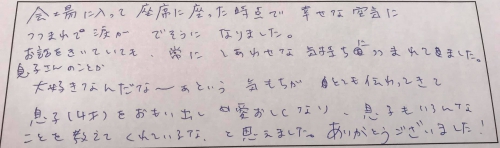 会場に入って座席に座った時点で幸せな空気に
つつまれて涙がでそうになりました。
お話をきいていても、常にしあわせな気持ちにつつまれてました。
息子さんのことが
大好きなんだな〜という気もちがとても伝わってきて
息子(4才)をおもい出し愛おしくなり、息子もいろんな
ことを教えてくれているな、と思えました。ありがとうございました!